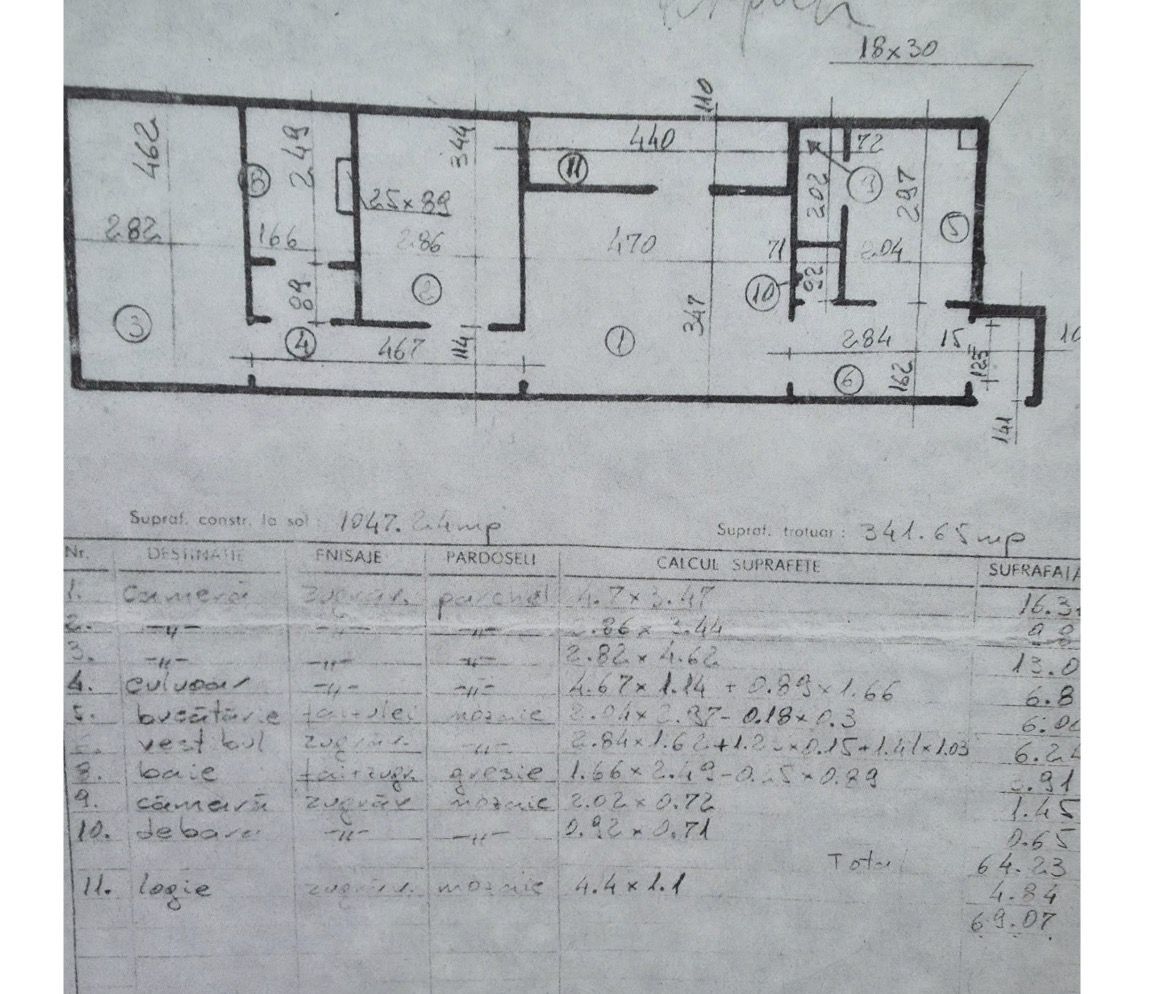 18x30
110
462
249
344
440
72
11
8
9
202
297
25x89
282
166
286
470
71
204
5
92
10
2
89
3
4
467
114
1
347
284
15
10
6
162
125
141
Supraf. constr. la sol : 1047.24mp
Supraf. trotuar : 341.65mp
Nr. DESTINAȚIE FINISAJE PARDOSELI CALCUL SUPRAFEȚE SUFRAFAȚA
1. Cameră zugrăv. parchet 4.7x3.47 16.3
2. -"- -"- -"- 2.86x3.44 9.8
3. -"- -"- -"- 2.82x4.62 13.0
4. culuoar -"- -"- 4.67x1.14 + 0.89x1.66 6.8
5. bucătărie mozaic 2.04x2.97-0.18x0.3 6.0
vestibul zugrăv. -"- 2.84x1.62+1.25x0.15+1.41x1.03 6.2
8. baie gresie 1.66x2.49-0.25x0.89 3.91
9. cămară zugrăv mozaic 2.02x0.72 1.45
10. debara -"- -"- 0.92x0.71 0.65
Total 64.23
11. logie zugrăv. mozaic 4.4x1.1 4.84
69.07